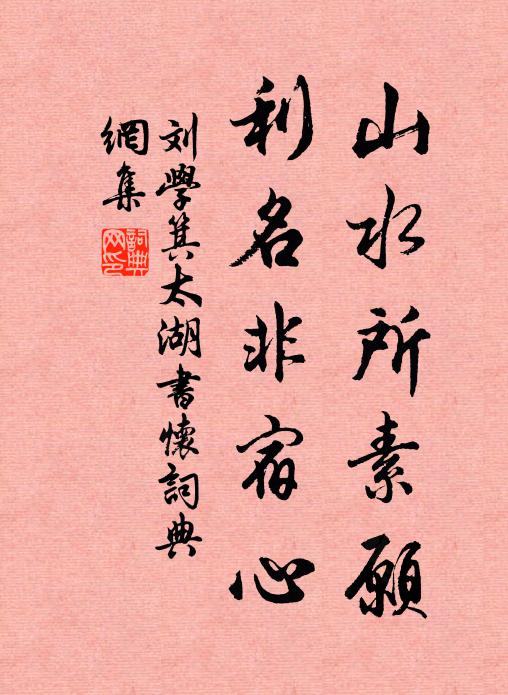 山水所素愿
利名非宿心
刘學箕太湖書懷詞典
網集
詞典
网印